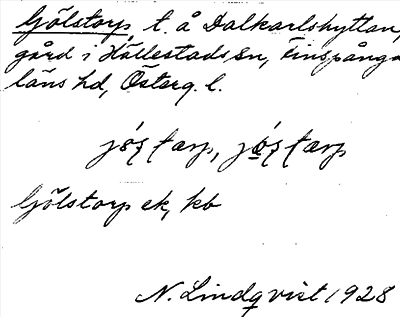 Gölstorp, t. å Dalkarlshyttan,
gård i Hällestads sn, Finspånga
läns hd, Österg. l.
Gölstorp ek, kb
N. Lindqvist 1928